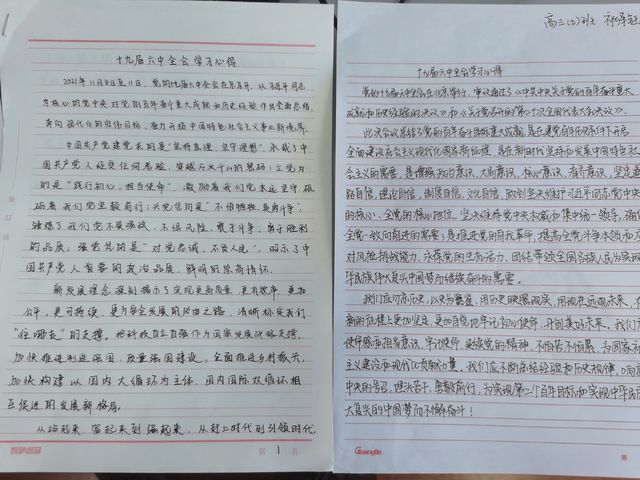 十九届六中全会学习心得
2021年11月8日至11日，党的十九届六中全会在京召开，以习近平同志
为核心的党中央对党的百年奋斗重大成就和历史经验作出全面总结
奔向现代化的宏伟目标，奋力开拓中国特色社会主义事业新境界。
中国共产党建党来的是"坚持真理、坚守理想"，承载了中
国共产党人经受住何考验，穿越万水千山的
的是"践行初心、担当使命"，激励着我们党永远坚守，砥砺
着我们党坚毅前行；兴党凭的是"不怕牺牲、英勇斗争"，
锤炼了我们党不畏强敌，不惧风险，敢于斗争，勇于胜利
的品质；强党凭的是"对党忠诚、不负人民"，昭示了中
国共产党人首要的政治品质，鲜明的宗旨情怀。
新发展理念深刻揭示了实现更高质量，更有效率，更加
公平，更可持续，更为安全发展的必由之路，清晰标实我们
"往哪去"的支撑。把科技自立自强作为国家发展战略支撑，
加快推进制造强国，质量强国建设，全面推进乡村振兴
加快构建以国内大循环为主体，国内国际双循环相
互促进的发展新格局。
从站起来，富起来到强起来，从赶上时代到引领时代，
第 1 页
装订线
高三(5)班
十九届六中全会学习心得
党的十九届六中全会在北京举行，审议通过了《中共中央关于党的百年奋斗重大
成就和历史经验的决议》和《关于党召开的第二十次全国代表大会决议》。
此次会议总结了党的百年奋斗的重大成就，是在建党百年历史条件下开启
全面建设社会主义现代化国家新征程，是在新时代坚持和发展中国特色社
会主义的需要，是增强政治意识，大局意识，核心意识，看齐意识，坚定道
路自信，理论自信，制度自信，文化自信，做到坚决维护习近平同志党中央
的核心，全党的核心地位，坚决维护党中央权威和集中统一领导，确保
全党一致向前进的需要；是推进党的自我革命，提高全党斗争本领和应
对风险挑战能力，永葆党的生机活力，团结带领全国各族人民为实现
华民族伟大复兴中国梦而继续奋斗的需要。
我们应勿忘历史，以史为鉴，用历史映照现实，用现在远观未来，在
新的征程上更加坚定，更加自觉地牢记初心使命，开创美好未来。我们
使命感和担当意识，牢记使命，延续党的精神，不怕苦不怕累，为国家
主义建设和现代化贡献力量。我们应不断总结经验和历史规律，响应
中央的号召，埋头苦干，勇毅前行，为实现第二个百年目标和实现中华民
大复兴的中国梦而不懈奋斗！
Guangbo
第